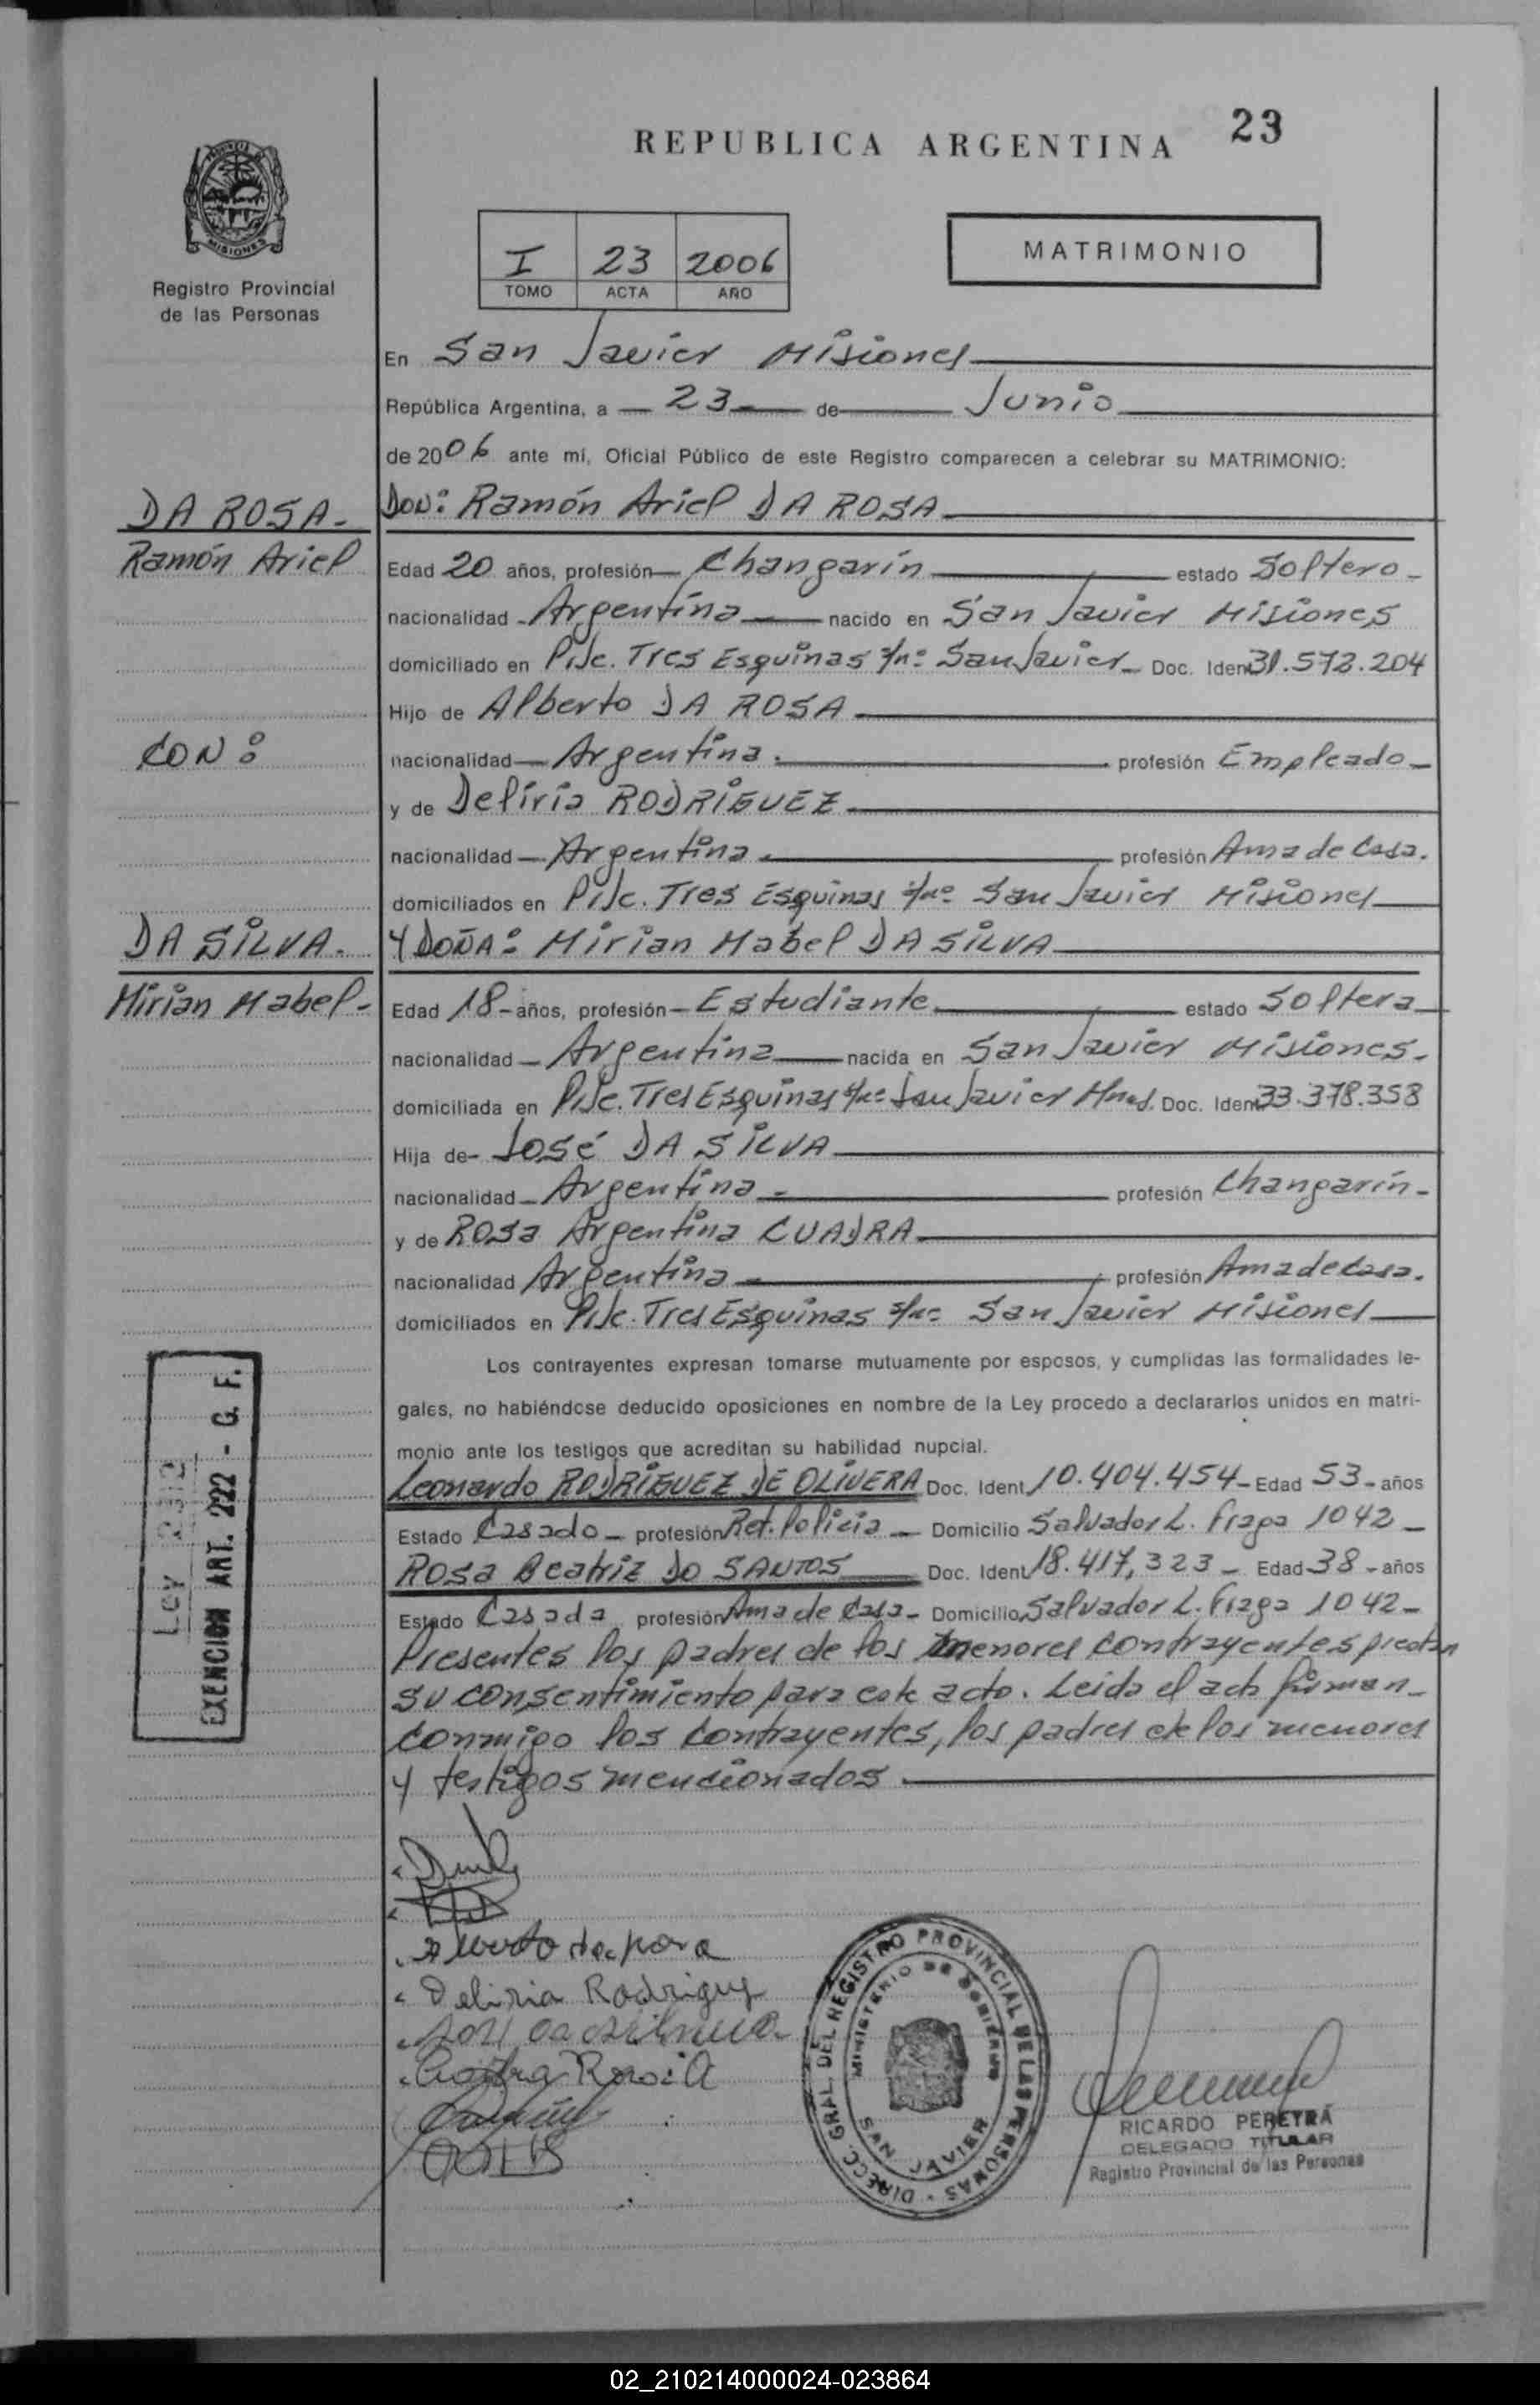 REPUBLICA ARGENTINA 23
MISIONES
Registro Provincial
de las Personas
I 23 2006
TOMO ACTA AÑO
MATRIMONIO
En San Javier Misiones
República Argentina, a 23 de Junio
de 2006 ante mí, Oficial Público de este Registro comparecen a celebrar su MATRIMONIO:
DA ROSA.
Ramón Ariel
DON: Ramón Ariel DA ROSA
Edad 20 años, profesión Changarín estado Soltero
nacionalidad Argentina nacido en San Javier Misiones
domiciliado en Pje. Tres Esquinas s/nº San Javier Doc. Ident 31.572.204
Hijo de Alberto DA ROSA
CON:
nacionalidad Argentina. profesión Empleado
y de Deliria RODRIGUEZ
nacionalidad Argentina. profesión Ama de Casa.
domiciliados en Pje. Tres Esquinas s/nº San Javier Misiones
DA SILVA.
Mirian Mabel
Y DOÑA: Mirian Mabel DA SILVA
Edad 18 años, profesión Estudiante estado Soltera
nacionalidad Argentina nacida en San Javier Misiones.
domiciliada en Pje. Tres Esquinas s/nº San Javier Mnes. Doc. Ident 33.378.358
Hija de José DA SILVA
nacionalidad Argentina profesión Changarín
y de Rosa Argentina CUADRA
nacionalidad Argentina profesión Ama de Casa.
domiciliados en Pje. Tres Esquinas s/nº San Javier Misiones
Los contrayentes expresan tomarse mutuamente por esposos, y cumplidas las formalidades le-
gales, no habiéndose deducido oposiciones en nombre de la Ley procedo a declararlos unidos en matri-
monio ante los testigos que acreditan su habilidad nupcial.
Leonardo RODRIGUEZ DE OLIVERA Doc. Ident 10.404.454 Edad 53 años
Estado Casado profesión Ret. Policia Domicilio Salvador L. Fraga 1042
Rosa Beatriz DO SANTOS Doc. Ident 18.417,323 Edad 38 años
Estado Casada profesión Ama de Casa Domicilio Salvador L. Fraga 1042
Presentes los padres de los menores contrayentes prestan
su consentimiento para este acto. Leida el acta firman
conmigo los contrayentes, los padres de los menores
y testigos mencionados
LEY 2312
EXENCION ART. 222 - G. F.
Deliria Rodriguez
DIRECC. GRAL. DEL REGISTRO PROVINCIAL DE LAS PERSONAS
MINISTERIO DE GOBIERNO
SAN JAVIER
RICARDO PEREYRA
DELEGADO TITULAR
Registro Provincial de las Personas
02_210214000024-023864